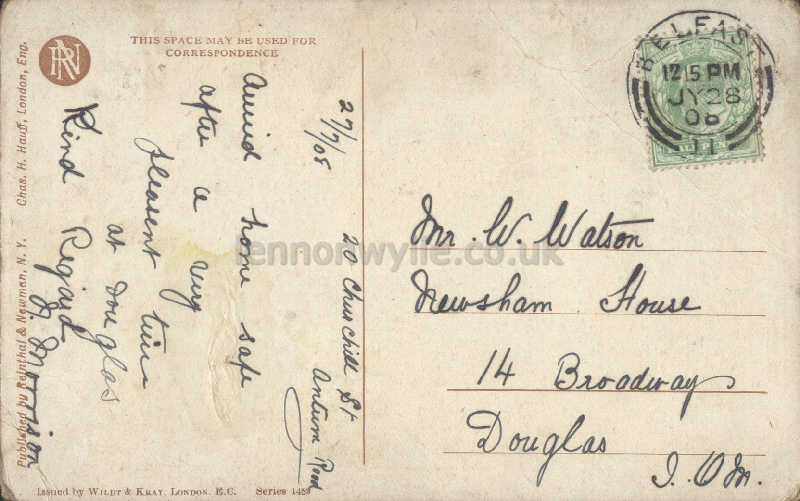 THIS SPACE MAY BE USED FOR
CORRESPONDENCE
RN
Chas. H. Hauff, London, Eng.
Published by Reinthal & Newman, N. Y.
27/7/08
20 Churchill St
Antrim Road
Arrivd home safe
after a very
pleasent time
at douglas
Kind Regard
J. Morrison
BELFAST
12 15 PM
JY 28
08
11
Mr. W. Watson
Newsham House
14 Broadway
Douglas
I. OM.
lennonwylie.co.uk
Issued by WILDT & KRAY. LONDON. E.C. Series 1459